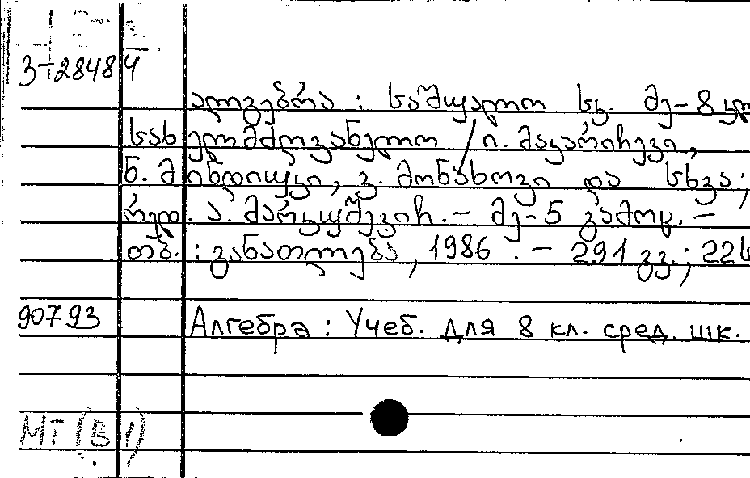 3-28484
ალგებრა : საშუალო სკ. მე-8 კლ
სახელმძღვანელო / ი. მაკარიჩევი,
ნ. მინდიუკი, კ. მონახოვი და სხვა;
რედ. ა. მარკუშევიჩ. - მე-5 გამოც. -
თბ. : განათლება, 1986. - 291 გვ.; 22
90793 Алгебра : Учеб. для 8 кл. сред. шк.
МГ (В 1)